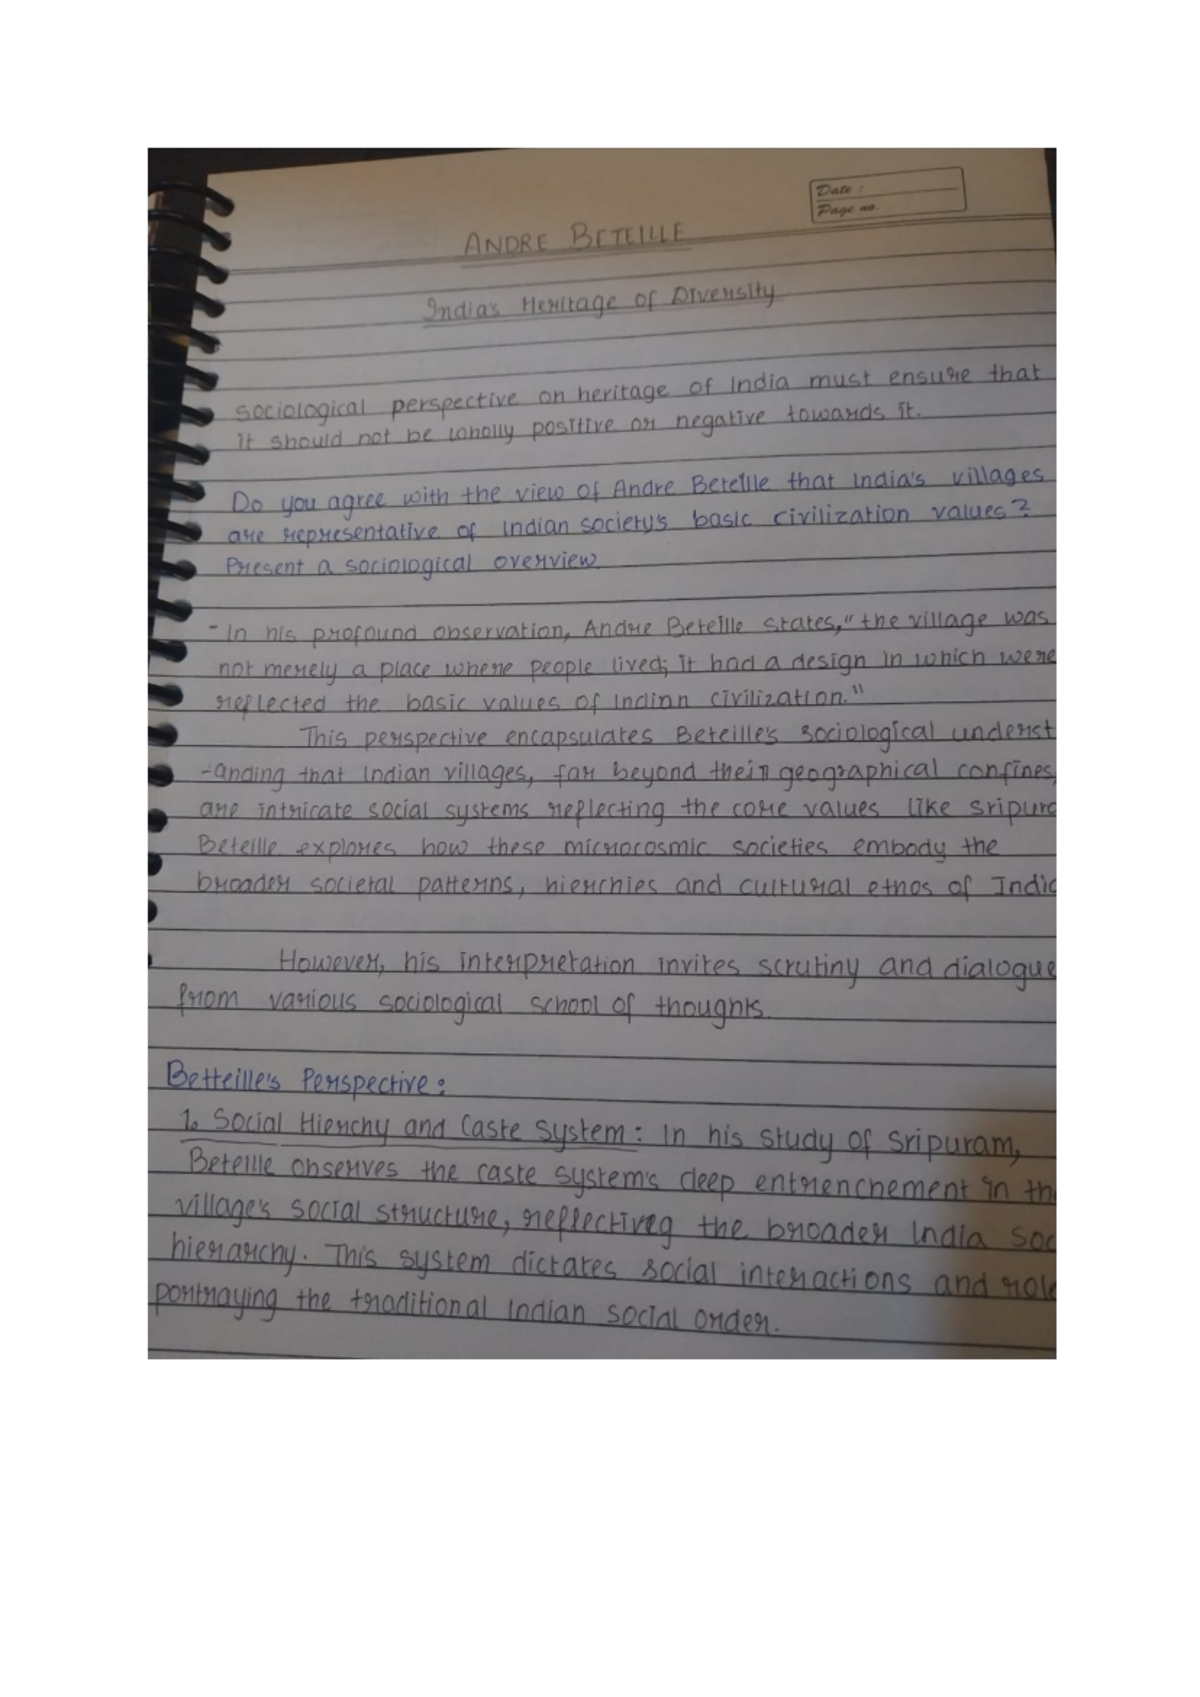 Date :
Page no.
ANDRE BETEILLE
India's Heritage of Diversity
sociological perspective on heritage of India must ensure that
it should not be wholly positive or negative towards it.
Do you agree with the view of Andre Beteille that India's villages
are representative of Indian society's basic civilization values?
Present a sociological overview.
- In his profound observation, Andre Beteille states, "the village was
not merely a place where people lived; it had a design in which were
reflected the basic values of Indian civilization."
This perspective encapsulates Beteille's sociological underst
-anding that Indian villages, far beyond their geographical confines,
are intricate social systems reflecting the core values like sripura
Beteille explores how these microcosmic societies embody the
broader societal patterns, hierchies and cultural ethos of India
However, his interpretation invites scrutiny and dialogue
from various sociological school of thoughts.
Betteille's Perspective:
1. Social Hierchy and Caste System: In his study of Sripuram,
Beteille observes the caste system's deep entrenchement in th
village's social structure, reflectiveg the broader India soc
hierarchy. This system dictates social interactions and role
portraying the traditional Indian social order.